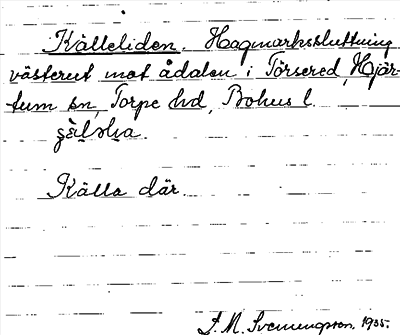 Källeliden. Hagmarkssluttning
västerut mot ådalen i Torsered, Hjär-
tum sn, Torpe hd, Bohus l.
Källa där.
S. M. Svenungsson. 1935.